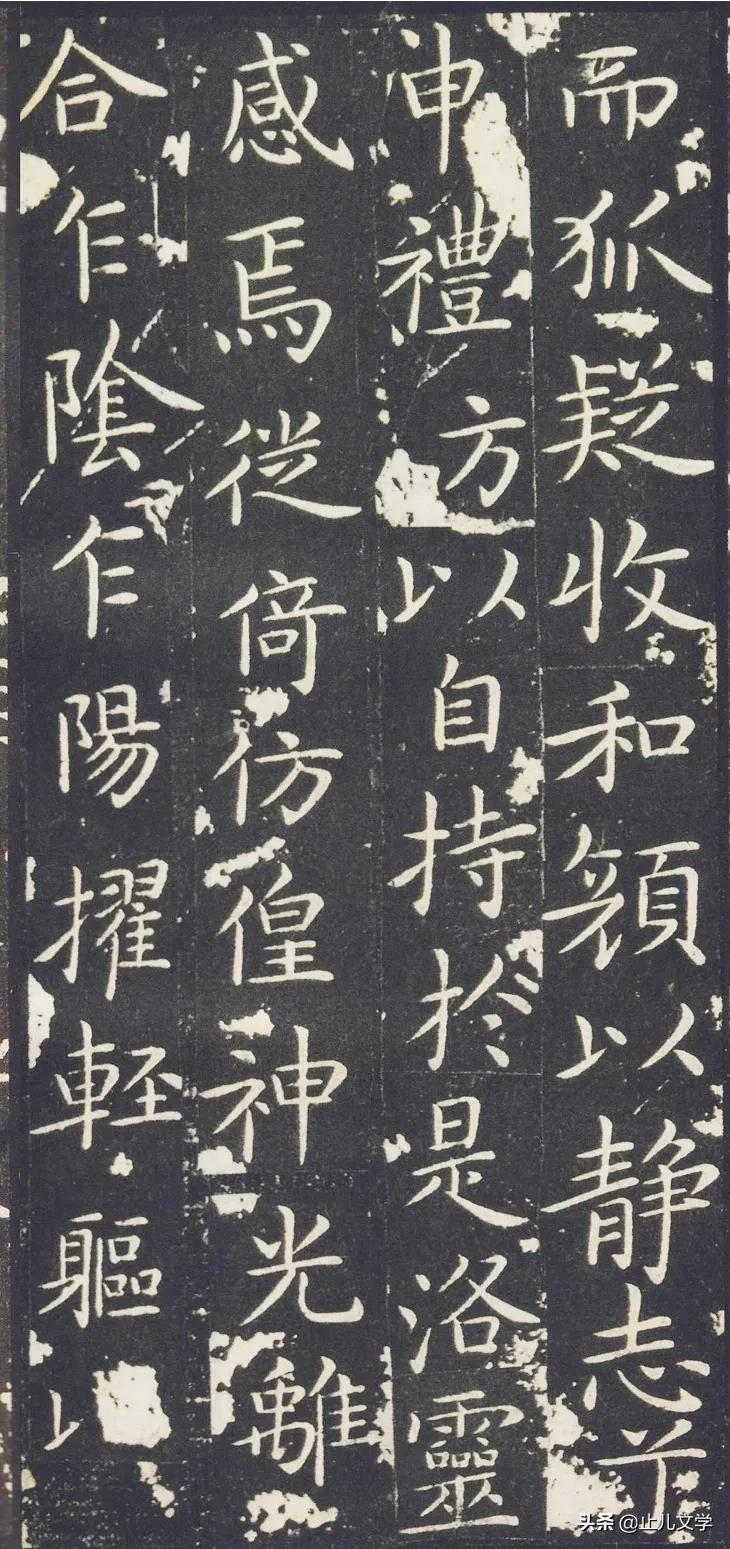 而狐疑收和顔以静志兮
申禮方以自持於是洛靈
感焉徙倚彷偟神光離
合乍陰乍陽擢輕軀
头条 @止儿文学